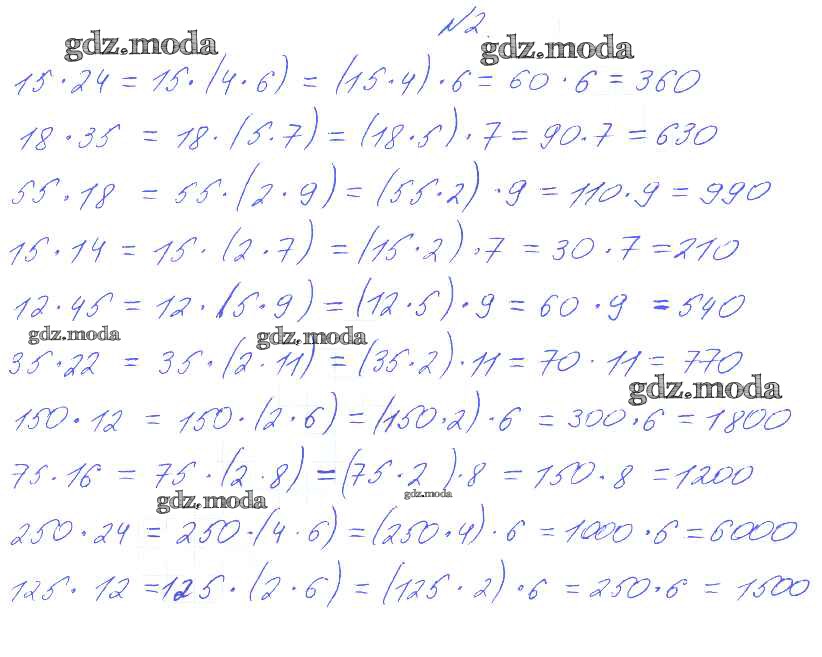 №2.
gdz.moda
gdz.moda
15·24 = 15·(4·6) = (15·4)·6 = 60·6 = 360
18·35 = 18·(5·7) = (18·5)·7 = 90·7 = 630
55·18 = 55·(2·9) = (55·2)·9 = 110·9 = 990
15·14 = 15·(2·7) = (15·2)·7 = 30·7 = 210
12·45 = 12·(5·9) = (12·5)·9 = 60·9 = 540
gdz.moda
gdz.moda
35·22 = 35·(2·11) = (35·2)·11 = 70·11 = 770
gdz.moda
150·12 = 150·(2·6) = (150·2)·6 = 300·6 = 1800
75·16 = 75·(2·8) = (75·2)·8 = 150·8 = 1200
gdz.moda
gdz.moda
250·24 = 250·(4·6) = (250·4)·6 = 1000·6 = 6000
125·12 = 125·(2·6) = (125·2)·6 = 250·6 = 1500